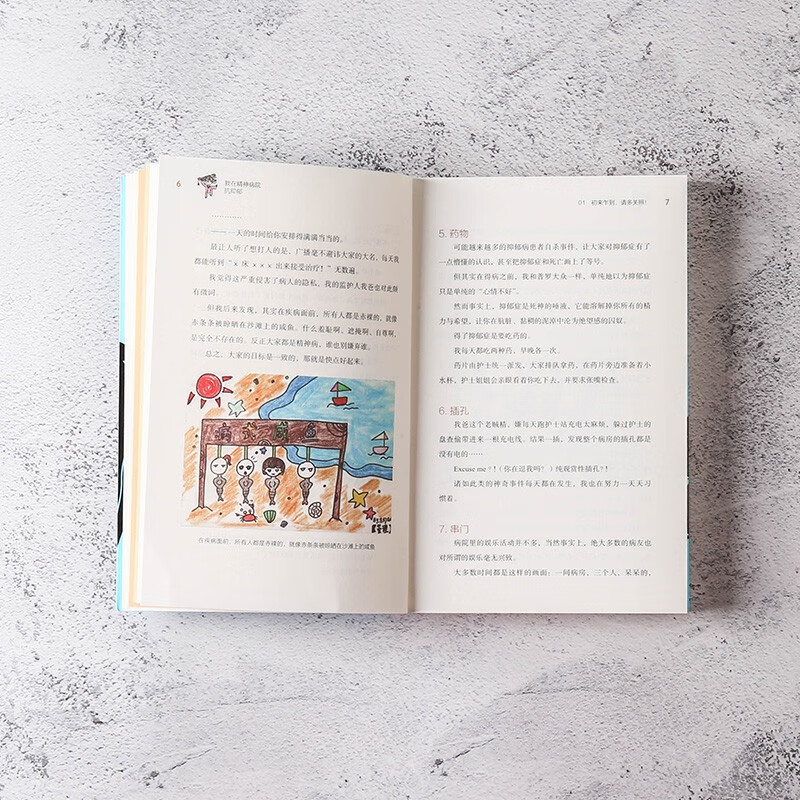 6
我在精神病院
抗抑郁
…………
———一天的时间给你安排得满满当当的。
最让人听了想打人的是，广播毫不避讳大家的大名，每天我
都能听到“× 床 × × × 出来接受治疗！”无数遍。
我觉得这严重侵害了病人的隐私，我的监护人我爸也对此颇
有微词。
但我后来发现，其实在疾病面前，所有人都是赤裸的，就像
赤条条被晾晒在沙滩上的咸鱼。什么羞耻啊、遮掩啊、自尊啊，
是完全不存在的。反正大家都是精神病，谁也别嫌弃谁。
总之，大家的目标是一致的，那就是快点好起来。
病式咸鱼
在疾病面前，所有人都是赤裸的，就像赤条条被晾晒在沙滩上的咸鱼
01 初来乍到，请多关照！ 7
5. 药物
可能越来越多的抑郁病患者自杀事件，让大家对抑郁症有了
一点懵懂的认识，甚至把抑郁症和死亡画上了等号。
但其实在得病之前，我和普罗大众一样，单纯地以为抑郁症
只是单纯的“心情不好”。
然而事实上，抑郁症是死神的唾液，它能溶解掉你所有的精
力与希望，让你在肮脏、黏稠的泥淖中沦为绝望感的囚奴。
得了抑郁症是要吃药的。
我每天都吃两种药，早晚各一次。
药片由护士统一派发，大家排队拿药，在药片旁边准备着小
水杯，护士姐姐会亲眼看着你吃下去，并要求张嘴检查。
6. 插孔
我爸这个老贼精，嫌每天跑护士站充电太麻烦，躲过护士的
盘查偷带进来一根充电线。结果一插，发现整个病房的插孔都是
没有电的……
Excuse me？！（你在逗我吗？）纯观赏性插孔？！
诸如此类的神奇事件每天都在发生，我也在努力一天天习
惯着。
7. 串门
病院里的娱乐活动并不多，当然事实上，绝大多数的病友也
对所谓的娱乐毫无兴致。
大多数时间都是这样的画面：一间病房，三个人，呆呆的，